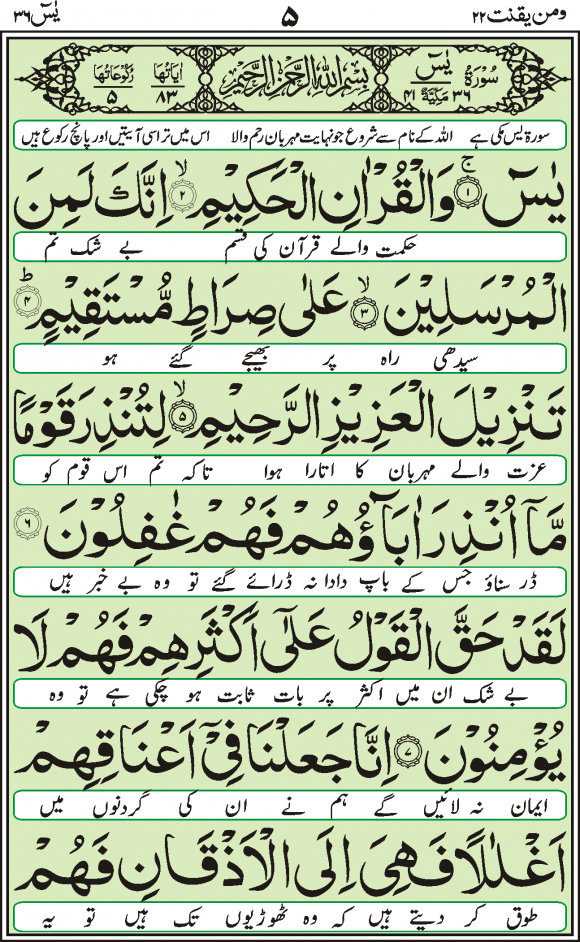 ومن یقنت ۲۲ ۵ یٰسٓ ۳۶
سُوْرَةُ يٰسٓ ۳۶ مَكِّيَّةٌ ۴۱ بِسْمِ اللّٰهِ الرَّحْمٰنِ الرَّحِيْمِ اٰيَاتُهَا ۸۳ رُكُوْعَاتُهَا ۵
سورۃ یس مکی ہے اللہ کے نام سے شروع جو نہایت مہربان رحم والا اس میں تراسی آیتیں اور پانچ رکوع ہیں
يٰسٓ ۚ‏ ﴿۱﴾ وَالْقُرْاٰنِ الْحَكِيْمِ ۙ‏ ﴿۲﴾ اِنَّكَ لَمِنَ
حکمت والے قرآن کی قسم بے شک تم
الْمُرْسَلِيْنَ ۙ‏ ﴿۳﴾ عَلٰى صِرَاطٍ مُّسْتَقِيْمٍ ؕ‏ ﴿۴﴾
سیدھی راہ پر بھیجے گئے ہو
تَنْزِيْلَ الْعَزِيْزِ الرَّحِيْمِ ۙ‏ ﴿۵﴾ لِتُنْذِرَ قَوْمًا
عزت والے مہربان کا اتارا ہوا تاکہ تم اس قوم کو
مَّاۤ اُنْذِرَ اٰبَآؤُهُمْ فَهُمْ غٰفِلُوْنَ ﴿۶﴾
ڈر سناؤ جس کے باپ دادا نہ ڈرائے گئے تو وہ بے خبر ہیں
لَقَدْ حَقَّ الْقَوْلُ عَلٰٓى اَكْثَرِهِمْ فَهُمْ لَا
بے شک ان میں اکثر پر بات ثابت ہو چکی ہے تو وہ
يُؤْمِنُوْنَ ﴿۷﴾ اِنَّا جَعَلْنَا فِىْۤ اَعْنَاقِهِمْ
ایمان نہ لائیں گے ہم نے ان کی گردنوں میں
اَغْلٰلًا فَهِىَ اِلَى الْاَذْقَانِ فَهُمْ
طوق کر دیتے ہیں کہ وہ ٹھوڑیوں تک ہیں تو یہ